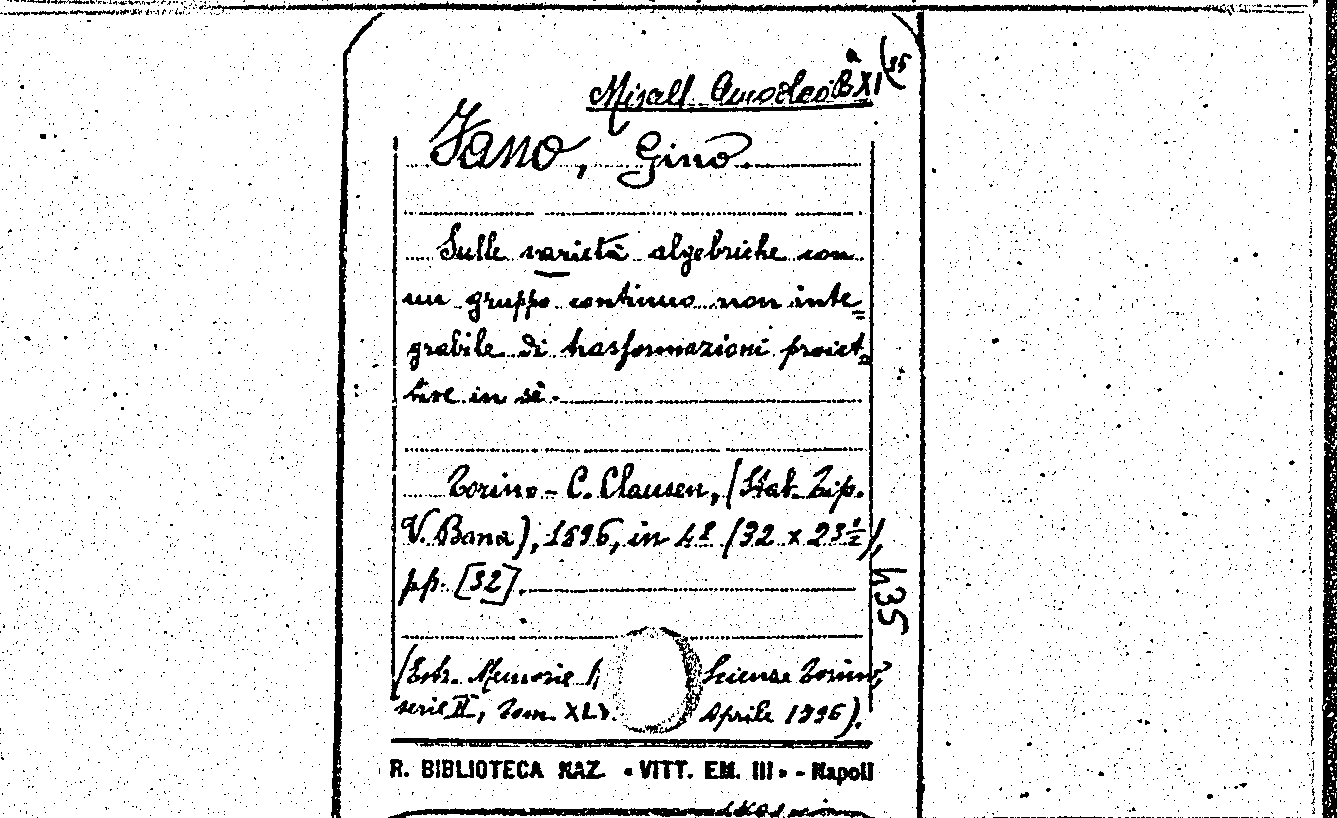 Miscell. Amodeo B XI (35
Fano, Gino.
Sulle varietà algebriche con
un gruppo continuo non inte=
grabile di trasformazioni proiet=
tive in sè.
Torino - C. Clausen, (Stab. Tip.
V. Bona), 1896, in 4º (32 x 23½),
pp. [32].
435
(Estr. Memorie Scienze Torino,
serie II, Tom. Aprile 1896).
R. BIBLIOTECA NAZ. «VITT. EM. III» - Napoli